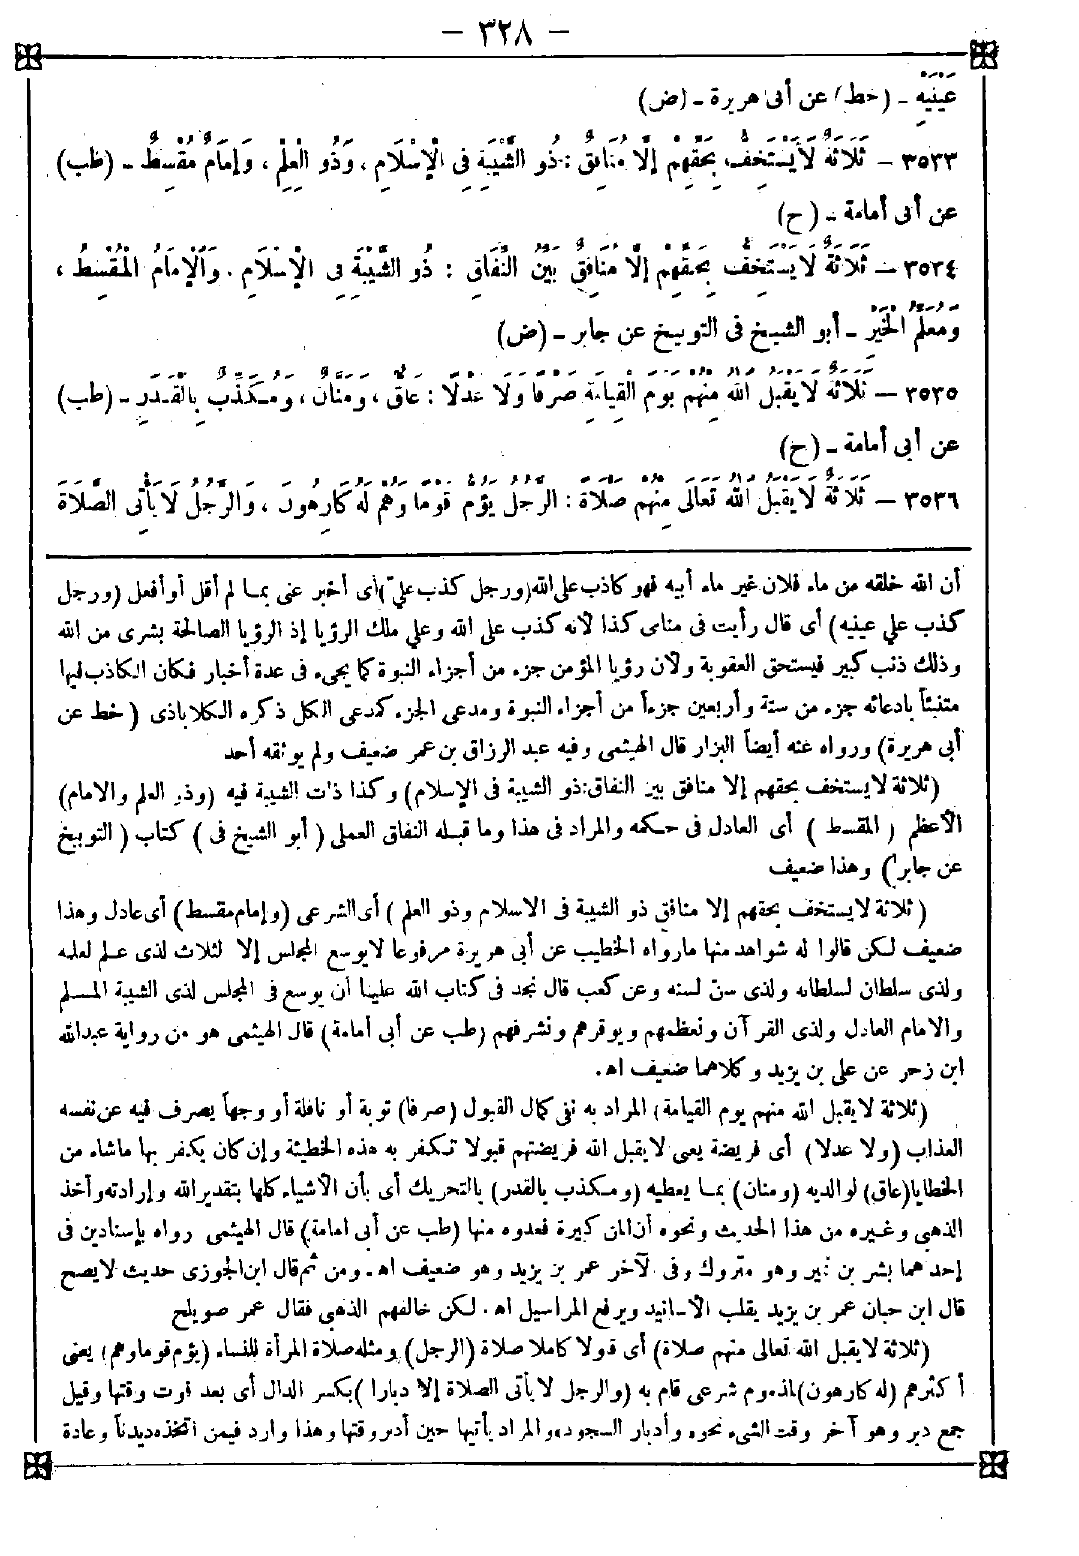 – ٣٢٨ –
عَيْنَيْهِ - (خط) عن أبى هريرة - (ض)
٣٥٣٣ – ثَلَاثَةٌ لَا يَسْتَخِفُّ بِحَقِّهِمْ إِلَّا مُنَافِقٌ : ذُو الشَّيْبَةِ فِى الْإِسْلَامِ ، وَذُو الْعِلْمِ ، وَإِمَامٌ مُقْسِطٌ - (طب)
عن أبى أمامة - (ح)
٣٥٣٤ – ثَلَاثَةٌ لَا يَسْتَخِفُّ بِحَقِّهِمْ إِلَّا مُنَافِقٌ بَيِّنُ النِّفَاقِ : ذُو الشَّيْبَةِ فِى الْإِسْلَامِ ، وَالْإِمَامُ الْمُقْسِطُ ،
وَمُعَلِّمُ الْخَيْرِ - أبو الشيخ فى التوبيخ عن جابر - (ض)
٣٥٣٥ – ثَلَاثَةٌ لَا يَقْبَلُ اللهُ مِنْهُمْ يَوْمَ الْقِيَامَةِ صَرْفًا وَلَا عَدْلًا : عَاقٌّ ، وَمَنَّانٌ ، وَمُكَذِّبٌ بِالْقَدَرِ - (طب)
عن أبى أمامة - (ح)
٣٥٣٦ – ثَلَاثَةٌ لَا يَقْبَلُ اللهُ تَعَالَى مِنْهُمْ صَلَاةً : الرَّجُلُ يَؤُمُّ قَوْمًا وَهُمْ لَهُ كَارِهُونَ ، وَالرَّجُلُ لَا يَأْتِى الصَّلَاةَ
أن الله خلقه من ماء فلان غير ماء أبيه فهو كاذب على الله (ورجل كذب علىّ) أى أخبر عنى بما لم أقل أو أفعل (ورجل
كذب على عينيه) أى قال رأيت فى منامى كذا لأنه كذب على الله وعلى ملك الرؤيا إذ الرؤيا الصالحة بشرى من الله
وذلك ذنب كبير فيستحق العقوبة ولأن رؤيا المؤمن جزء من أجزاء النبوة كما يجىء فى عدة أخبار فكان الكاذب فيها
متنبئاً بادعائه جزء من ستة وأربعين جزءاً من أجزاء النبوة ومدعى الجزء كمدعى الكل ذكره الكلاباذى (خط عن
أبى هريرة) ورواه عنه أيضاً البزار قال الهيثمى وفيه عبد الرزاق بن عمر ضعيف ولم يوثقه أحد
(ثلاثة لا يستخف بحقهم إلا منافق بين النفاق: ذو الشيبة فى الإسلام) وكذا ذات الشيبة فيه (وذو العلم والامام)
الأعظم (المقسط) أى العادل فى حكمه والمراد فى هذا وما قبله النفاق العملى (أبو الشيخ فى) كتاب (التوبيخ
عن جابر) وهذا ضعيف
(ثلاثة لا يستخف بحقهم إلا منافق ذو الشيبة فى الاسلام وذو العلم) أى الشرعى (وإمام مقسط) أى عادل وهذا
ضعيف لكن قالوا له شواهد منها ما رواه الخطيب عن أبى هريرة مرفوعا لا يوسع المجلس إلا لثلاث لذى علم لعلمه
ولذى سلطان لسلطانه ولذى سن لسنه وعن كعب قال نجد فى كتاب الله علينا أن يوسع فى المجلس لذى الشيبة المسلم
والامام العادل ولذى القرآن ونعظمهم ويوقرهم ونشرفهم (طب عن أبى أمامة) قال الهيثمى هو من رواية عبدالله
ابن زحر عن على بن يزيد وكلاهما ضعيف اه.
(ثلاثة لا يقبل الله منهم يوم القيامة) المراد به نفى كمال القبول (صرفا) توبة أو نافلة أو وجهاً يصرف فيه عن نفسه
العذاب (ولا عدلا) أى فريضة يعنى لا يقبل الله فريضتهم قبولا تكفر به هذه الخطيئة وإن كان يكفر بها ماشاء من
الخطايا (عاق) لوالديه (ومنان) بما يعطيه (ومكذب بالقدر) بالتحريك أى بأن الأشياء كلها بتقدير الله وإرادته وأخذ
الذهبى وغيره من هذا الحديث ونحوه أن المن كبيرة فعدوه منها (طب عن أبى امامة) قال الهيثمى رواه بإسنادين فى
إحدهما بشر بن نمير وهو متروك وفى الآخر عمر بن يزيد وهو ضعيف اه. ومن ثم قال ابن الجوزى حديث لا يصح
قال ابن حبان عمر بن يزيد يقلب الأسانيد ويرفع المراسيل اه. لكن خالفهم الذهبى فقال عمر صويلح
(ثلاثة لا يقبل الله تعالى منهم صلاة) أى قبولا كاملا صلاة (الرجل) ومثله صلاة المرأة للنساء (يؤم قوما وهم) يعنى
أكثرهم (له كارهون) لمذموم شرعى قام به (والرجل لا يأتى الصلاة إلا دبارا) بكسر الدال أى بعد فوت وقتها وقيل
جمع دبر وهو آخر وقت الشىء نحوه وأدبار السجود، والمراد يأتيها حين أدبر وقتها وهذا وارد فيمن اتخذه ديدناً وعادة